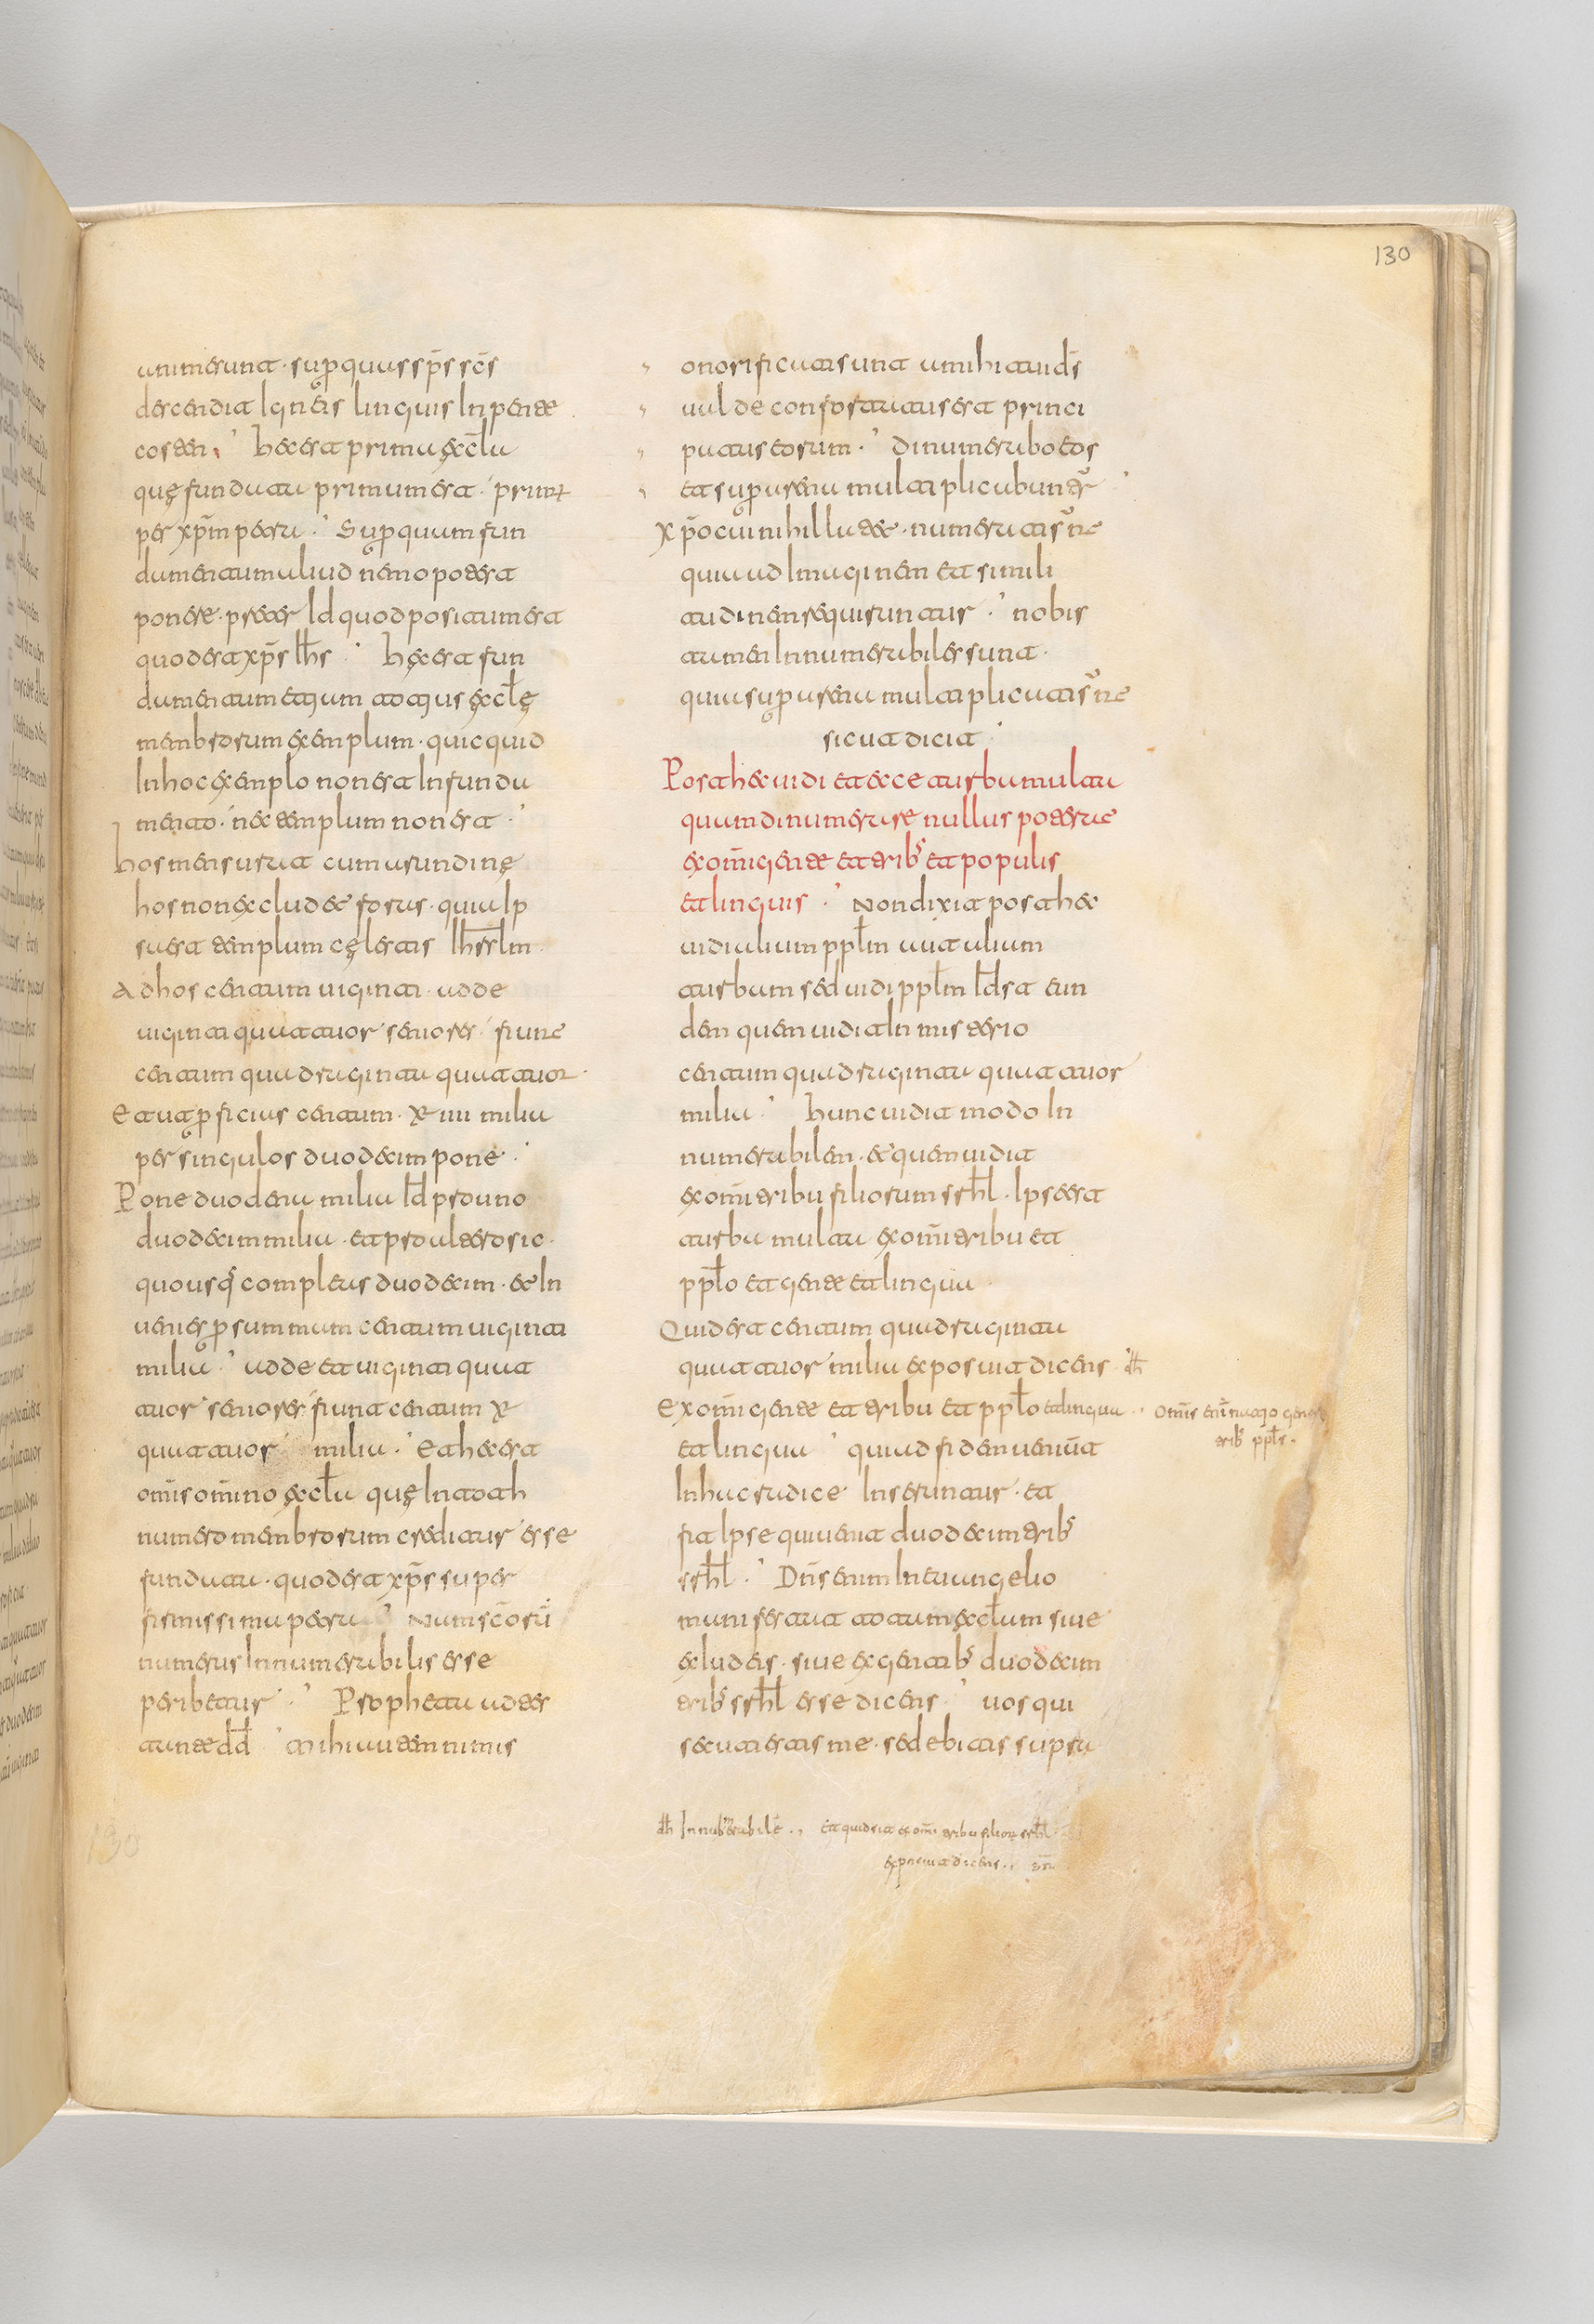 animerant · sup quas sps scs
descendit Igneis linguis In pente
costen · hec est prima ęccla
quę fundata primum est · primū
per xpm petra · Sup quam fun
damentum aliud nemo potest
ponere · preter Id quod positum est
quod est xps Ihs · hęc est fun
damentum etqum totius ęcclę
membrorum exemplum · quicquid
In hoc exemplo non est In funda
mento · nec templum non est ·
hos mensurat cum arundinę
hos non excludet foras · quia Ip
su est templum cęlestis Ihrslm ·
Ad hos centum uiginti · adde
uiginti quattuor seniores · fiunt
centum quadraginta quattuor ·
Et ut pficias centum · XL iiii milia
per singulos duodecim pone ·
Pone duodena milia Id pro uno
duodecim milia · et pro altero sic ·
quousq compleas duodecim · et In
uenies p summum centum uiginti
milia · adde et uiginti quat
tuor seniores fiunt centum XL
quattuor milia · Et hec est
omis omino ęccla quę In toth
numero membrorum creditur esse
fundata · quod est xps super
firmissima petra · Nam scorū
numerus Innumerabilis esse
peribetur · Propheta ad es
tante dd · mihi autem nimis
130
onorificati sunt amihi tui ds
ualde confortatus est princi
patus eorum · dinumerabo eos
et sup arena multiplicabuntr
Xpo cui nihil latet · numerati snt
qui ad Imaginem et simili
tudinem requiruntur · nobis
tamen Innumerabiles sunt ·
quia sup arena multiplicati snt
sicut dicit ·
Post hec uidi et ecce turba multa
quam dinumerare nullus poterat
ex omi gente et tribs et populis
et linguis · Non dixit post hec
uidi alium pplm aut alium
turbum sed uidi pplm Id est eun
dem quem uidit In misterio
centum quadraginta quattuor
milia · hunc uidit modo In
numerabilem · et quem uidit
ex omi tribu filiorum srhl · Ipse est
turba multa ex omi tribu et
pplo et gente et lingua ·
Quid est centum quadraginta
quattuor milia exposuit dicens · dh
Ex omi gente et tribu et pplo et lingua ·
et lingua quia ad fidem
In hac radice Inseruntur · et
fit Ipse qui uenit duodecim tribs
srhl · Dns enim In euangelio
manifestat totum ęcclam siue
ex ludeis · siue ex gentibs duodecim
tribs srhl esse dicens · uos qui
secuti estis me · sedebitis supra
tribs ppls ·
dh
ex omi tribu
130